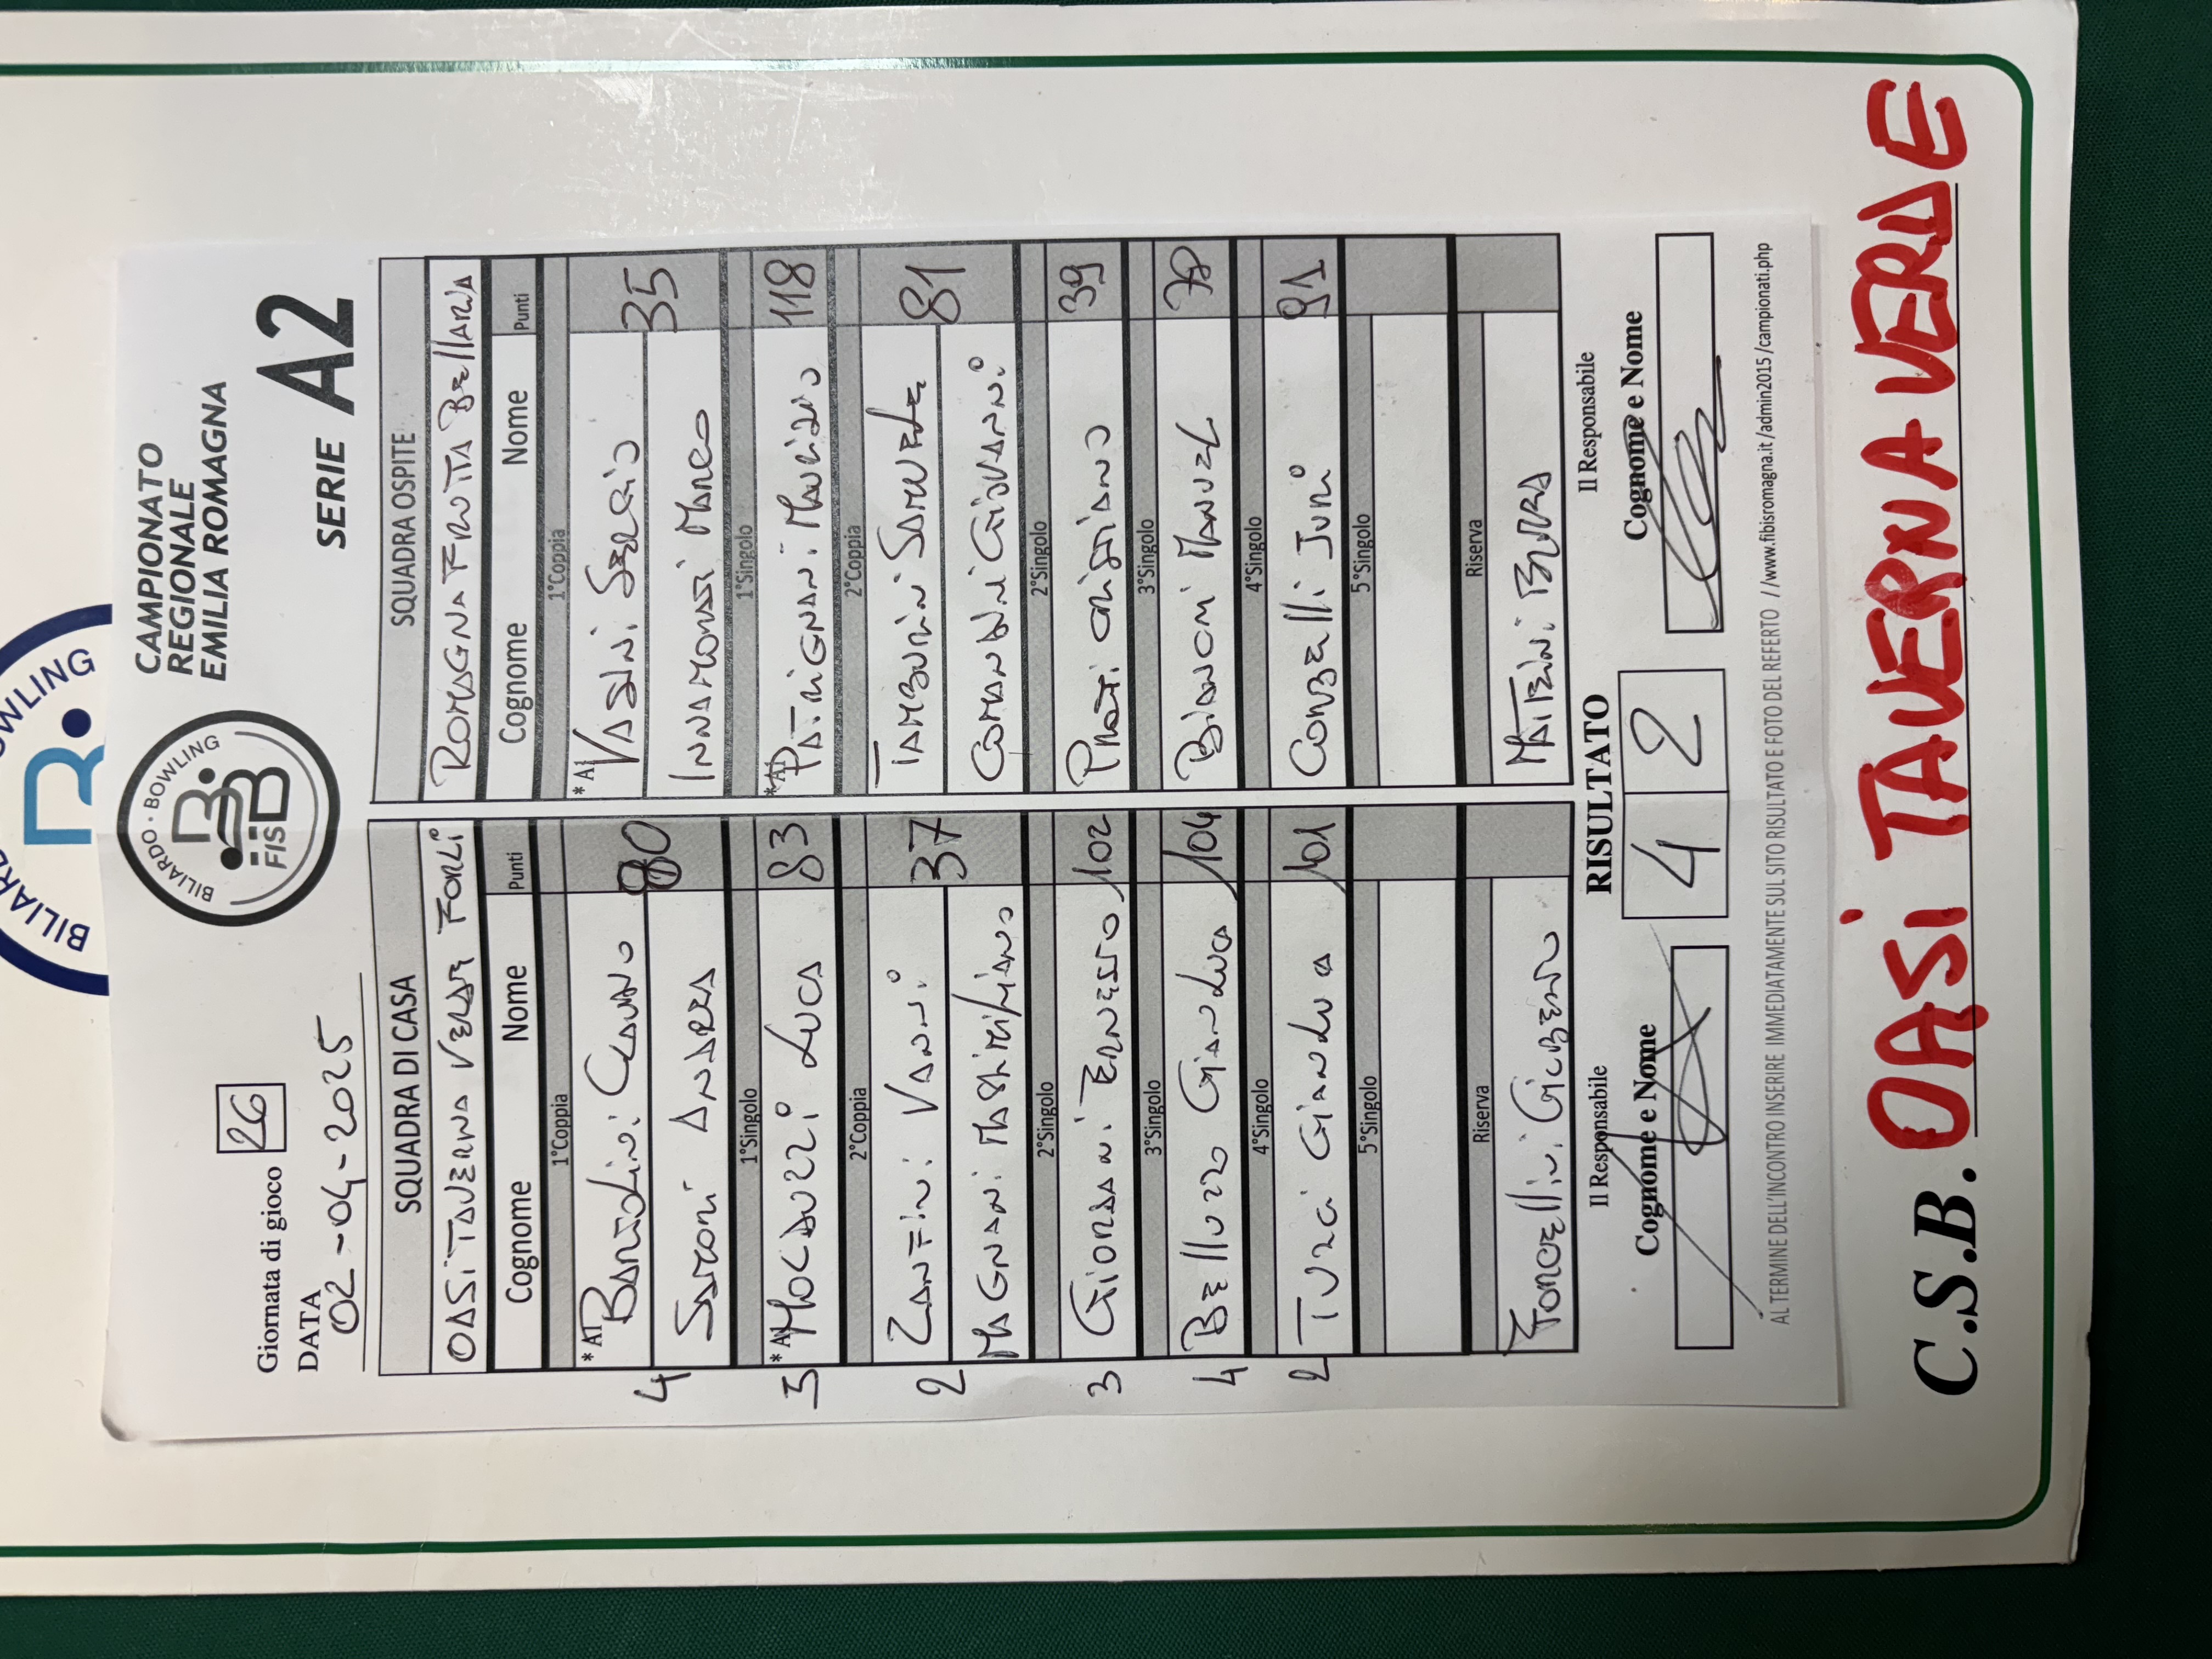 BILIARDO · BOWLING
BILIARDO · BOWLING
FISBB
CAMPIONATO
REGIONALE
EMILIA ROMAGNA
Giornata di gioco 26
DATA
02-04-2025
SERIE A2
SQUADRA DI CASA SQUADRA OSPITE
OASI TAVERNA VERDE FORLì ROMAGNA FROTTA BEllARIA
Cognome Nome Punti Cognome Nome Punti
1°Coppia 1°Coppia
*A1 BARTOLINI CLAUDIO *A1 VASINI SERGIO
4 80 35
SARTONI ANDREA INNAMORATI MARCO
1°Singolo 1°Singolo
5 *A1 MOCAUZZI LUCA 83 *A1 PATRIGNANI MAURIZIO 118
2°Coppia 2°Coppia
ZANFINI VANNI TAMBURINI SAMUELE
2 37 81
MAGNANI MASSIMILIANO COMANDINI GIOVANNI
2°Singolo 2°Singolo
3 GIORDANI ERNESTO 102 PRATI CRISTIANO 39
3°Singolo 3°Singolo
4 BELLUZZO GIANLUCA 104 BIANCHI MANUEL 78
4°Singolo 4°Singolo
2 TURCI GIANLUCA 101 CORBELLI JURI 91
5°Singolo 5°Singolo
Riserva Riserva
FORCELLINI GILBERTO MATTEINI
Il Responsabile RISULTATO Il Responsabile
Cognome e Nome 4 2 Cognome e Nome
AL TERMINE DELL'INCONTRO INSERIRE IMMEDIATAMENTE SUL SITO RISULTATO E FOTO DEL REFERTO //www.fibisromagna.it/admin2015/campionati.php
C.S.B. OASi TAVERNA VERDE